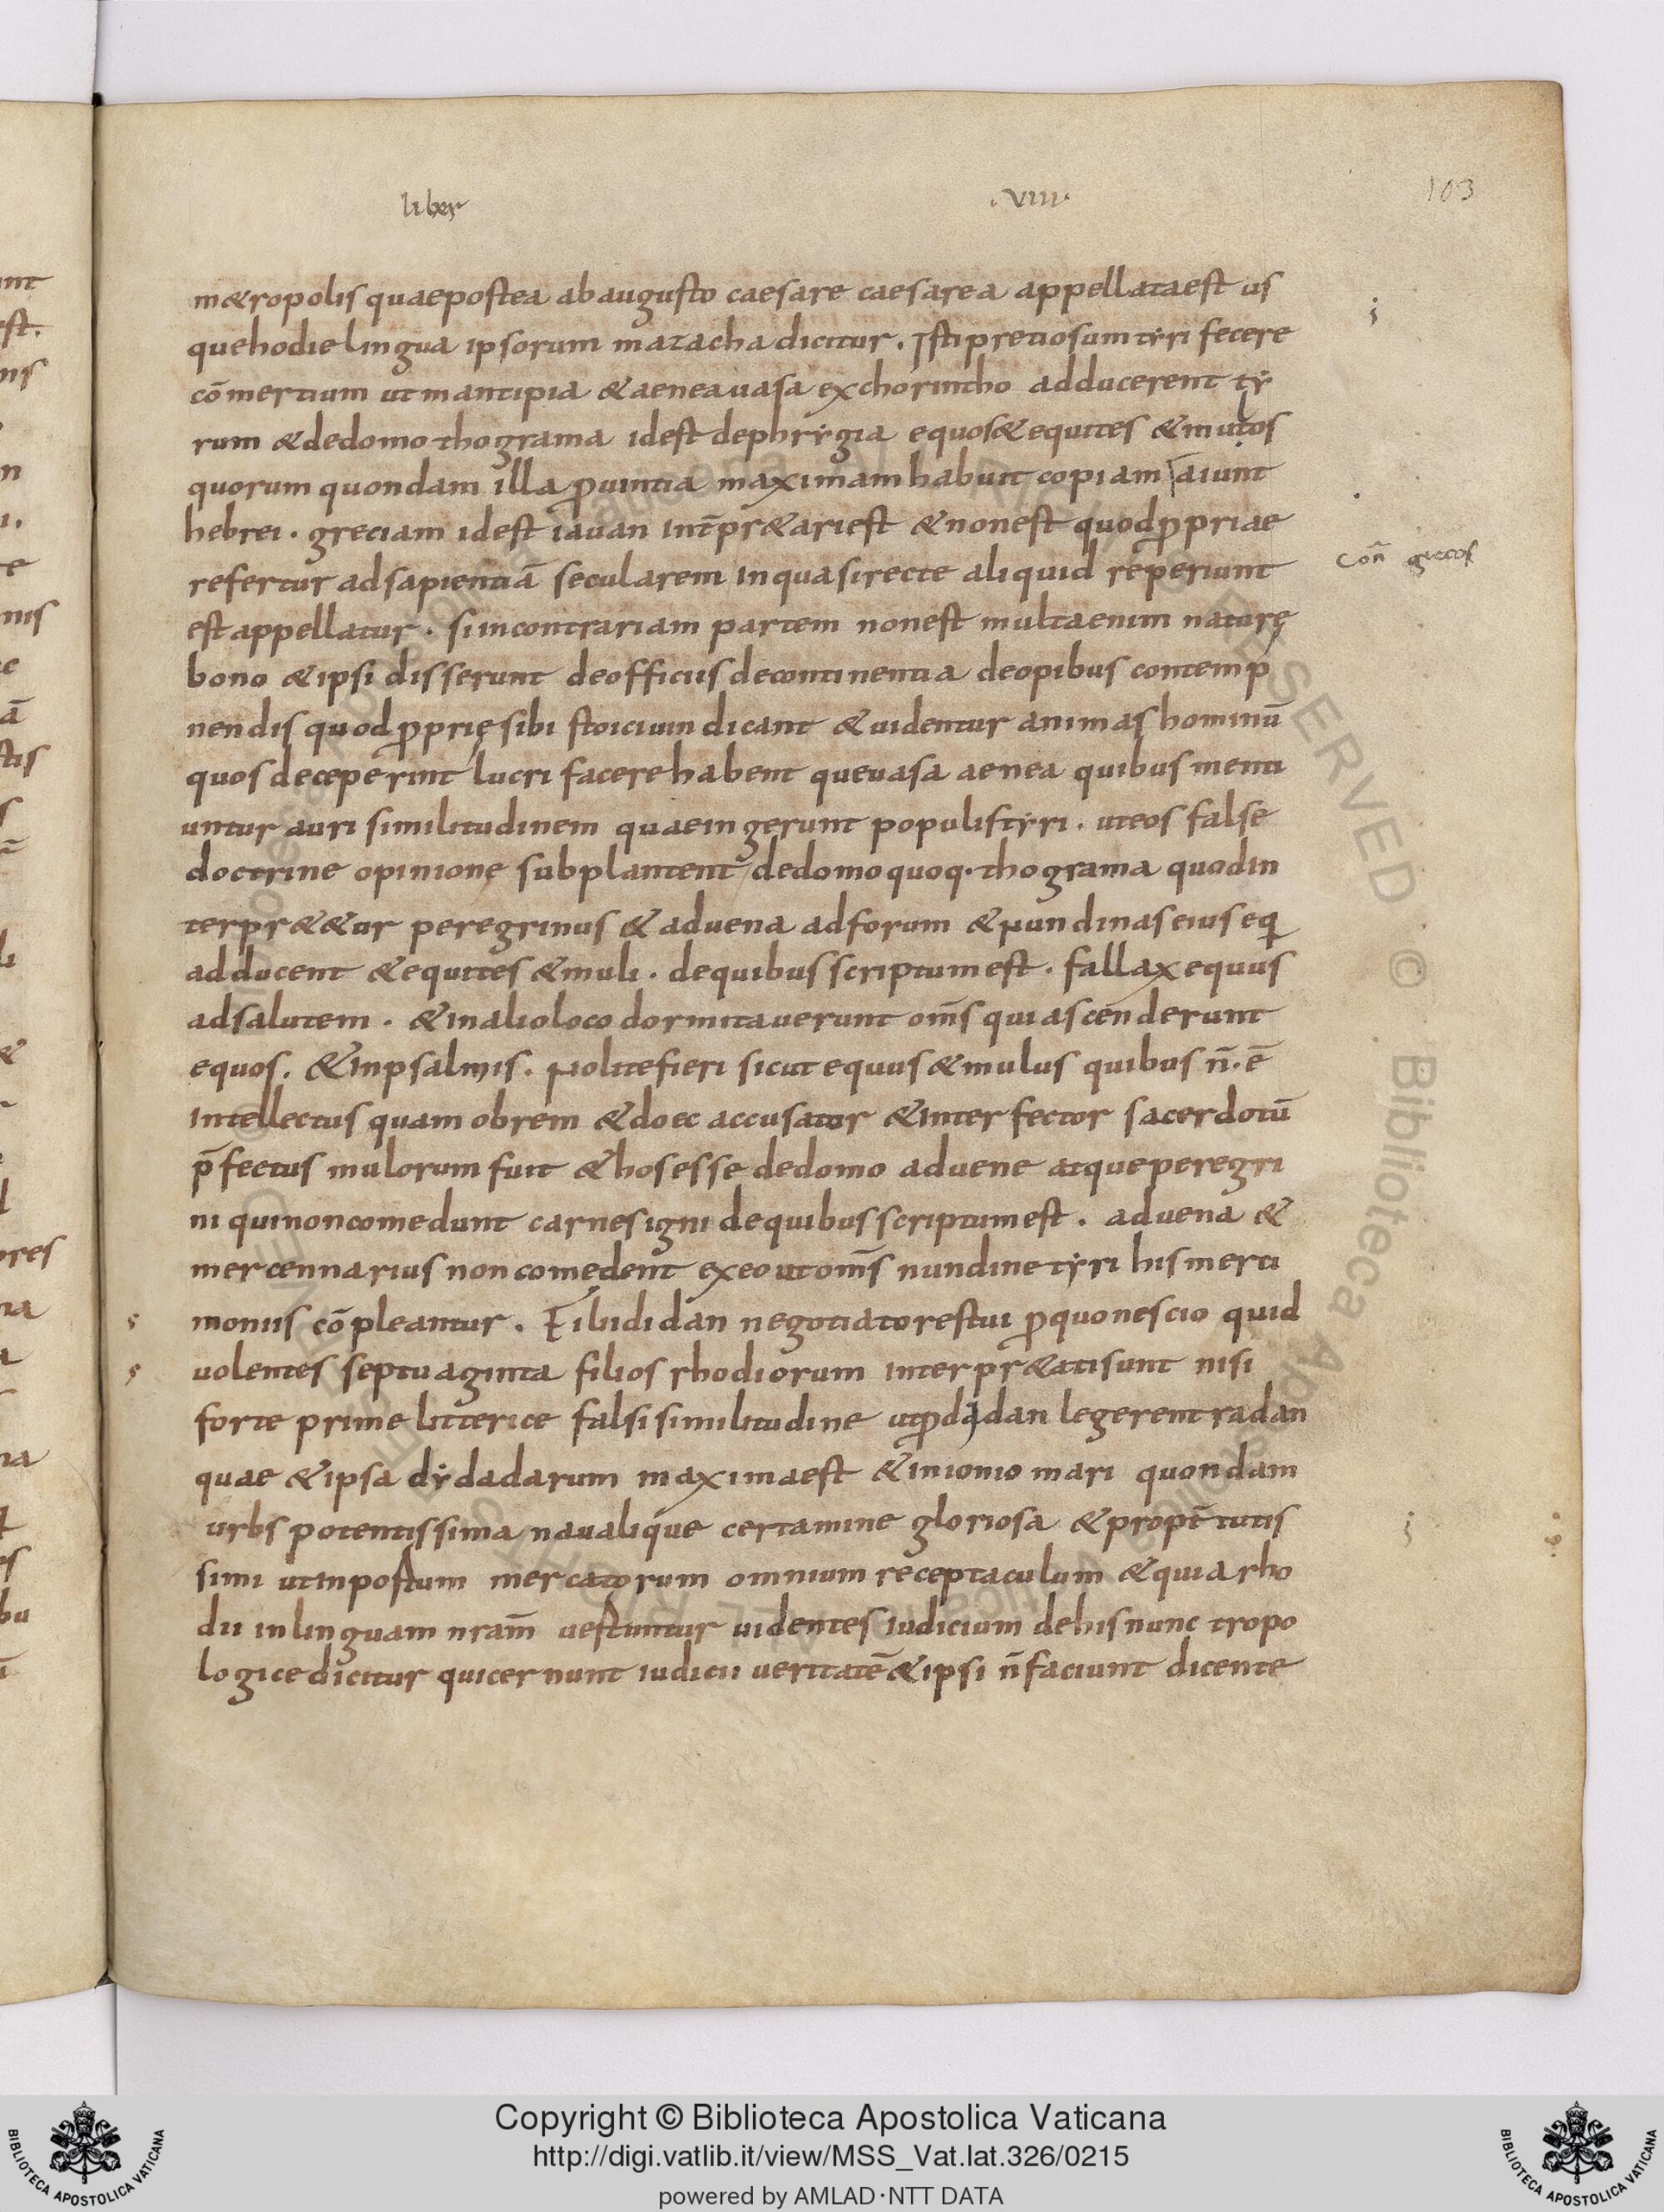 liber .VIIII.
103
m&ropolis quaepostea abaugusto caesare caesarea appellataest us
quehodielingua ipsorum mazacha dicitur. Istipretiosumtyri fecere
cōmertium utmantipia &aeneauasa exchorintho adducerent ty
rum &dedomothograma idest dephrygia equos&equites &mulos
quorum quondam illa ꝓuintia maximam habuit copiam aiunt
hebrei. greciam idest iauan int̄pr&ariest &nonest quodꝓpriae
refertur adsapientiā secularem inquasirecte aliquid reperiunt
Con̄ grecos
estappellatur. sincontrariam partem nonest multaenim naturę
bono &ipsi disserunt deofficiis decontinentia deopibus contemp
nendis quodꝓprię sibi stoicium dicant &uidentur animas hominū
quos deceperint lucri facere habent queuasa aenea quibus menti
untur auri similitudinem quaeingerunt populistyri. uteos false
doctrine opinione subplantent dedomoquoq· thograma quodin
terpr&&ur peregrinus &aduena adforum &nundinaseius eq
adducent &equites &muli. dequibus scriptumest. fallaxequus
adsalutem. &inalioloco dormitauerunt om̄s quiascenderunt
equos. &inpsalmis. Nolitefieri sicutequus &mulus quibus n̄.ē
intellectus quam obrem &doec accusator &interfector sacerdotū
p̄fectus mulorum fuit &hosesse dedomo aduene atqueperegri
ni quinoncomedunt carnes igni dequibus scriptumest. aduena &
mercennarius noncomedent exeoutom̄s nundinetyri hismerti
moniis cōpleantur. Filiididan negotiatorestui ꝓquonescio quid
uolentes septuaginta filios rhodiorum interpr&atisunt nisi
forte prime litterice falsisimilitudine utꝓdadan legerentradan
quae &ipsa cycladarum maximaest &inionio mari quondam
urbs potentissima naualique certamine gloriosa &propt̄ tutis
simi utinpostum mercatorum omnium receptaculum &quiarho
dii inlinguam nram̄ uestuntur uidentes iudicium dehisnunc tropo
logicedicitur quicernunt iudicii ueritatē &ipsi n̄faciunt dicente
Copyright © Biblioteca Apostolica Vaticana
http://digi.vatlib.it/view/MSS_Vat.lat.326/0215
powered by AMLAD·NTT DATA